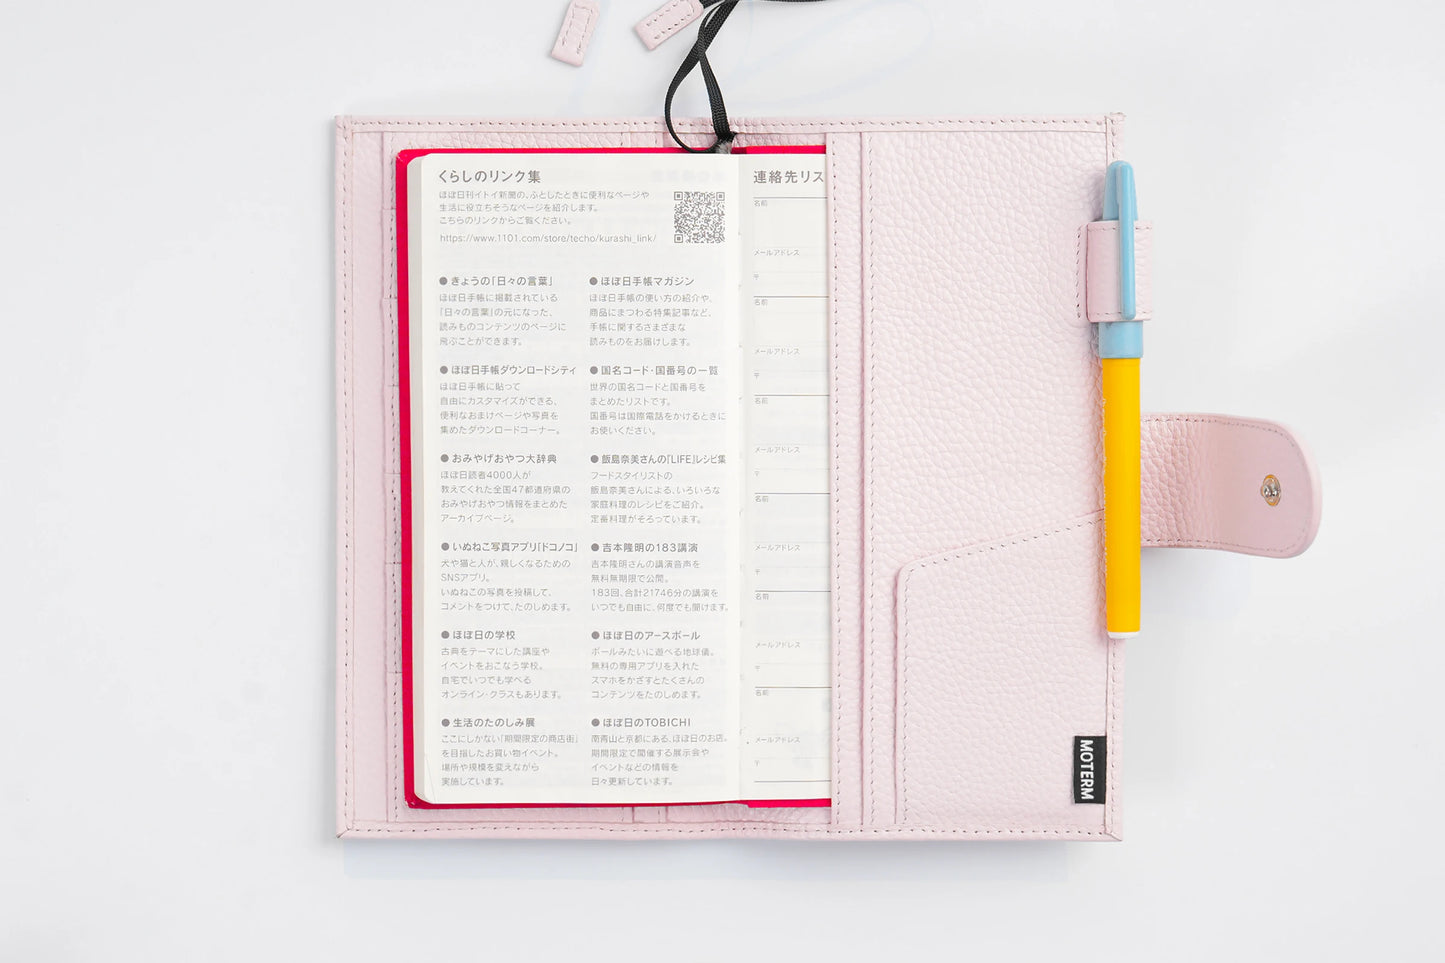 くらしのリンク集
ほぼ日刊イトイ新聞の、ふとしたときに便利なページや
生活に役立ちそうなページを紹介します。
こちらのリンクからご覧ください。
https://www.1101.com/store/techo/kurashi_link/
● きょうの「日々の言葉」
ほぼ日手帳に掲載されている
「日々の言葉」の元になった、
読みものコンテンツのページに
飛ぶことができます。
● ほぼ日手帳ダウンロードシティ
ほぼ日手帳に貼って
自由にカスタマイズができる、
便利なおまけページや写真を
集めたダウンロードコーナー。
● おみやげおやつ大辞典
ほぼ日読者4000人が
教えてくれた全国47都道府県の
おみやげおやつ情報をまとめた
アーカイブページ。
● いぬねこ写真アプリ「ドコノコ」
犬や猫と人が、親しくなるための
SNSアプリ。
いぬねこの写真を投稿して、
コメントをつけて、たのしめます。
● ほぼ日の学校
古典をテーマにした講座や
イベントをおこなう学校。
自宅でいつでも学べる
オンライン・クラスもあります。
● 生活のたのしみ展
ここにしかない「期間限定の商店街」
を目指したお買い物イベント。
場所や規模を変えながら
実施しています。
● ほぼ日手帳マガジン
ほぼ日手帳の使い方の紹介や、
商品にまつわる特集記事など、
手帳に関するさまざまな
読みものをお届けします。
● 国名コード・国番号の一覧
世界の国名コードと国番号を
まとめたリストです。
国番号は国際電話をかけるときに
お使いください。
● 飯島奈美さんの「LIFE」レシピ集
フードスタイリストの
飯島奈美さんによる、いろいろな
家庭料理のレシピをご紹介。
定番料理がそろっています。
● 吉本隆明の183講演
吉本隆明さんの講演音声を
無料無期限で公開。
183回、合計21746分の講演を
いつでも自由に、何度でも聞けます。
● ほぼ日のアースボール
ボールみたいに遊べる地球儀。
無料の専用アプリを入れた
スマホをかざすとたくさんの
コンテンツをたのしめます。
● ほぼ日のTOBICHI
南青山と京都にある、ほぼ日のお店。
期間限定で開催する展示会や
イベントなどの情報を
日々更新しています。
連絡先リス
名前
メールアドレス
〒
名前
メールアドレス
〒
名前
メールアドレス
〒
名前
メールアドレス
〒
名前
メールアドレス
〒
名前
メールアドレス
〒
MOTERM